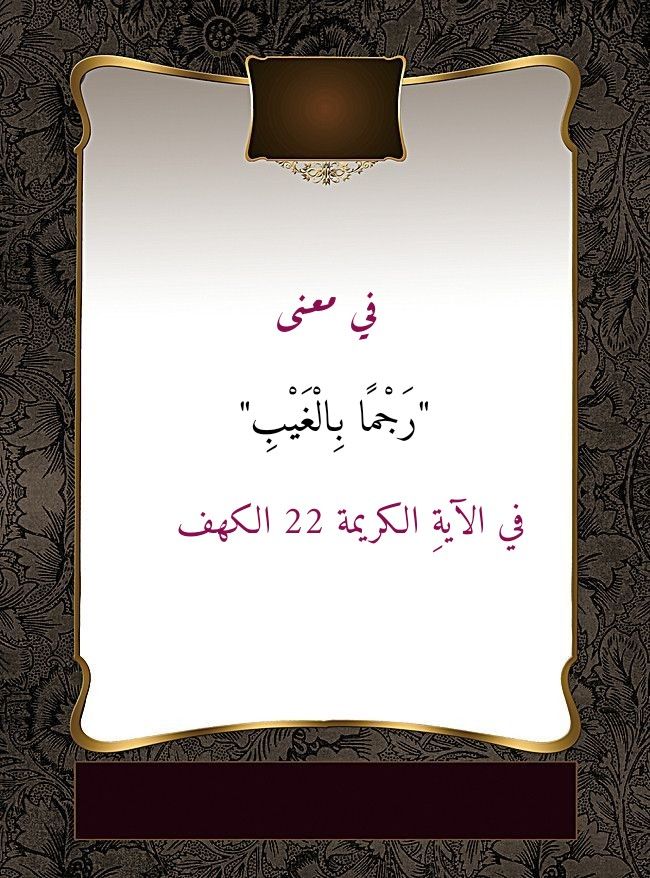 في معنى
"رَجْمًا بِالْغَيْبِ"
في الآيةِ الكريمة 22 الكهف